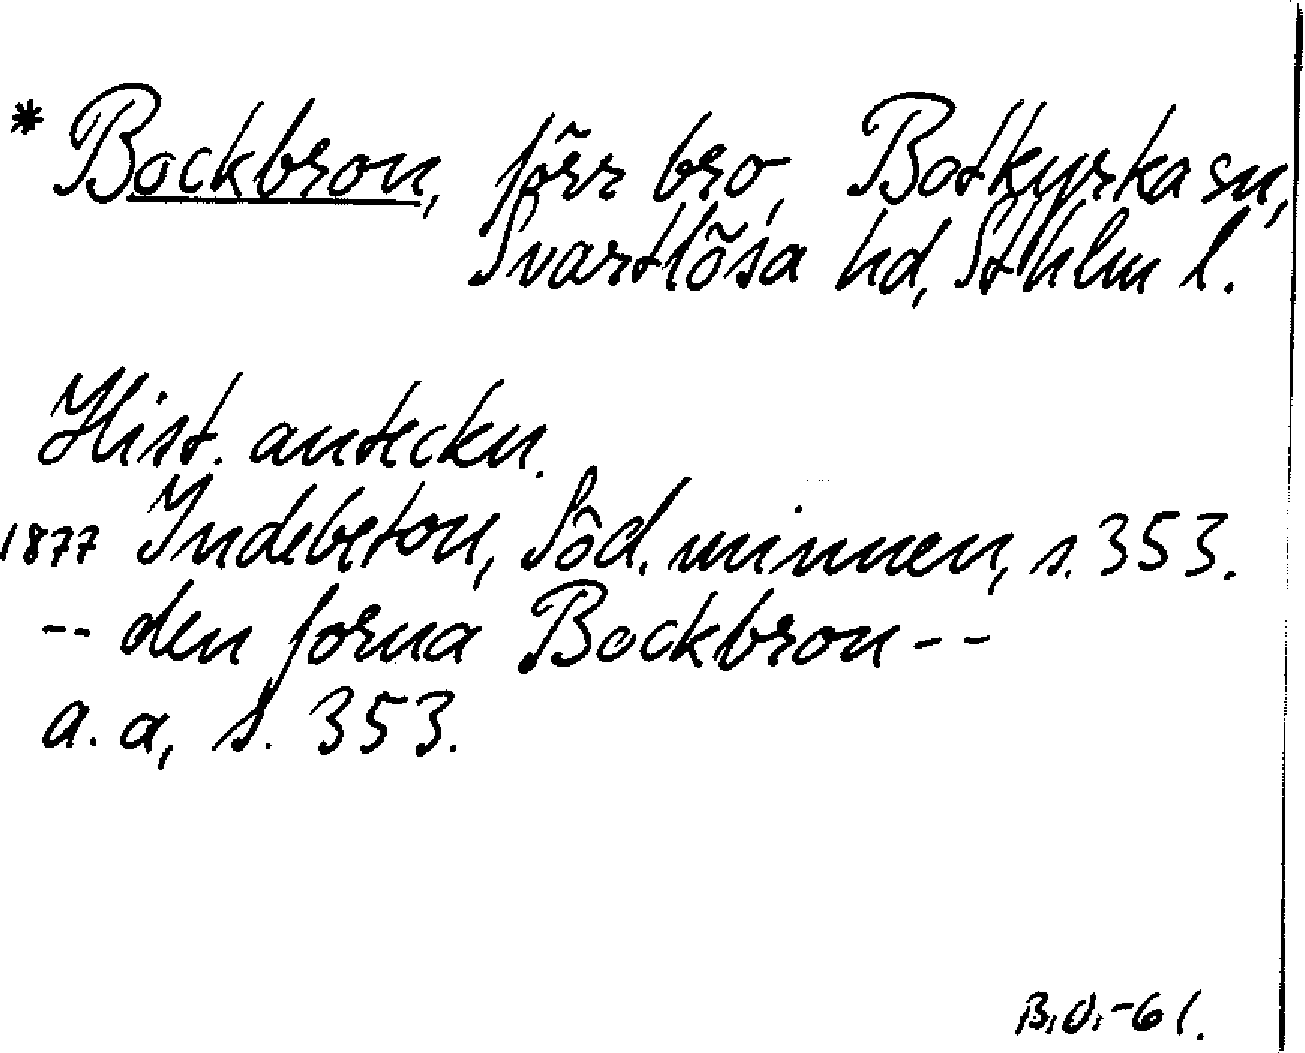 * Bockbron, förr bro, Botkyrka sn,
Svartlösa hd, Sthlm l.
Hist. anteckn.
1877 Indebetou, Söd. minnen, s. 353.
-- den forna Bockbron --
a. a, s. 353.
B.O.-61.